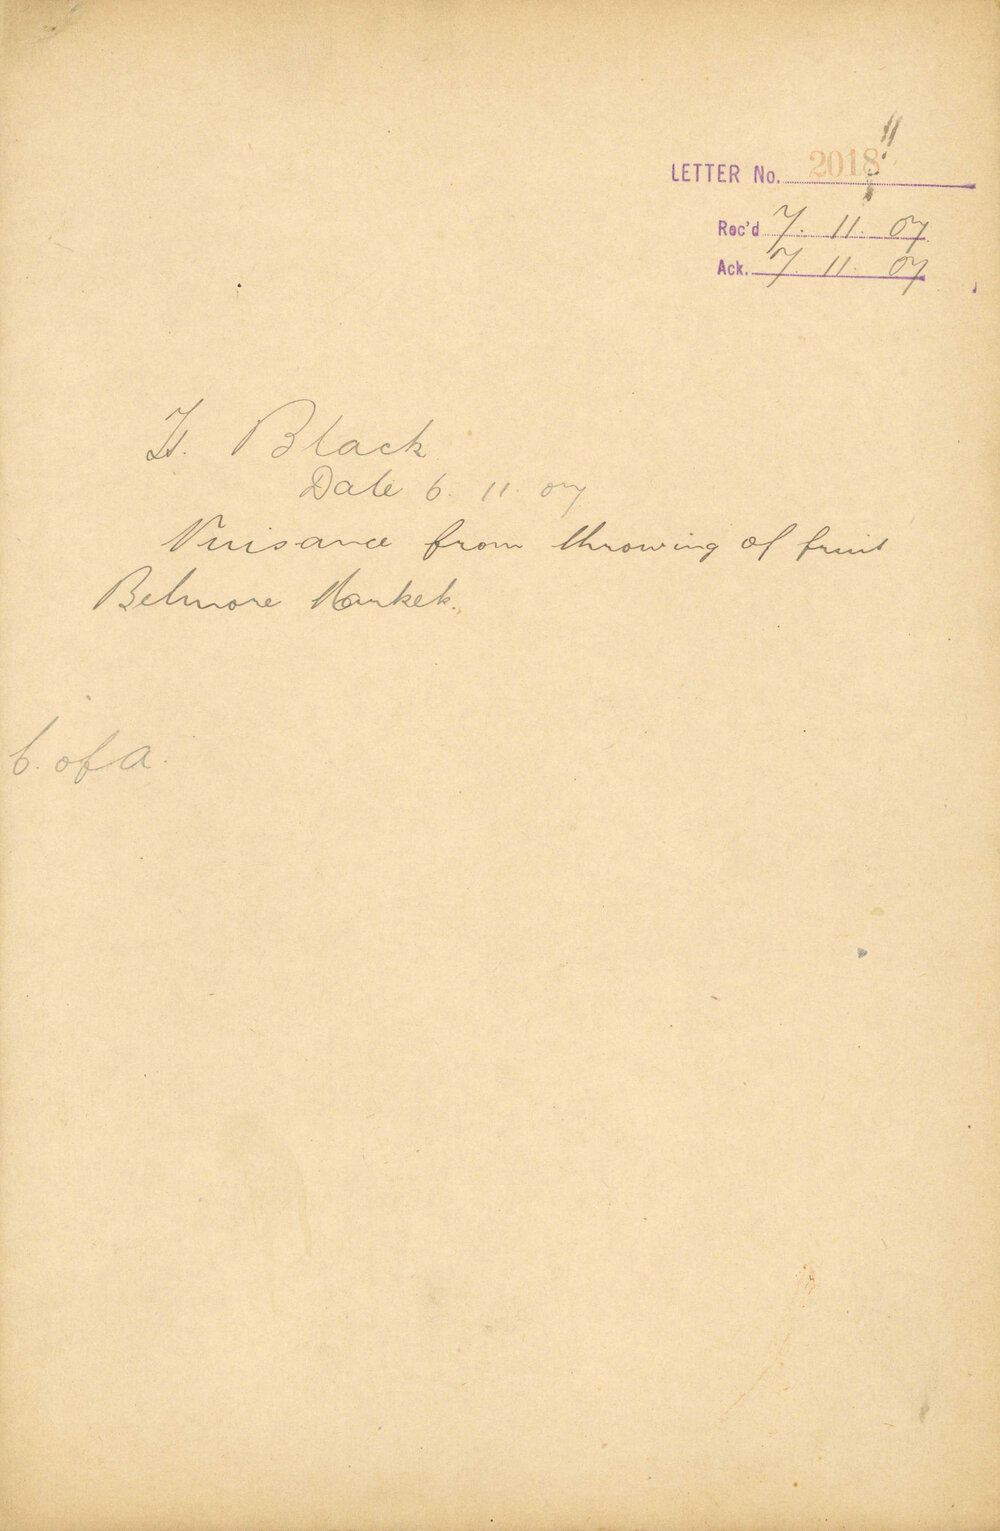 LETTER No. 2018
Rec'd 7. 11. 07
Ack. 7 11. 07
Black
Date 6. 11. 07
Nuisance from throwing of fruit
Belmore Market.
C. of A.